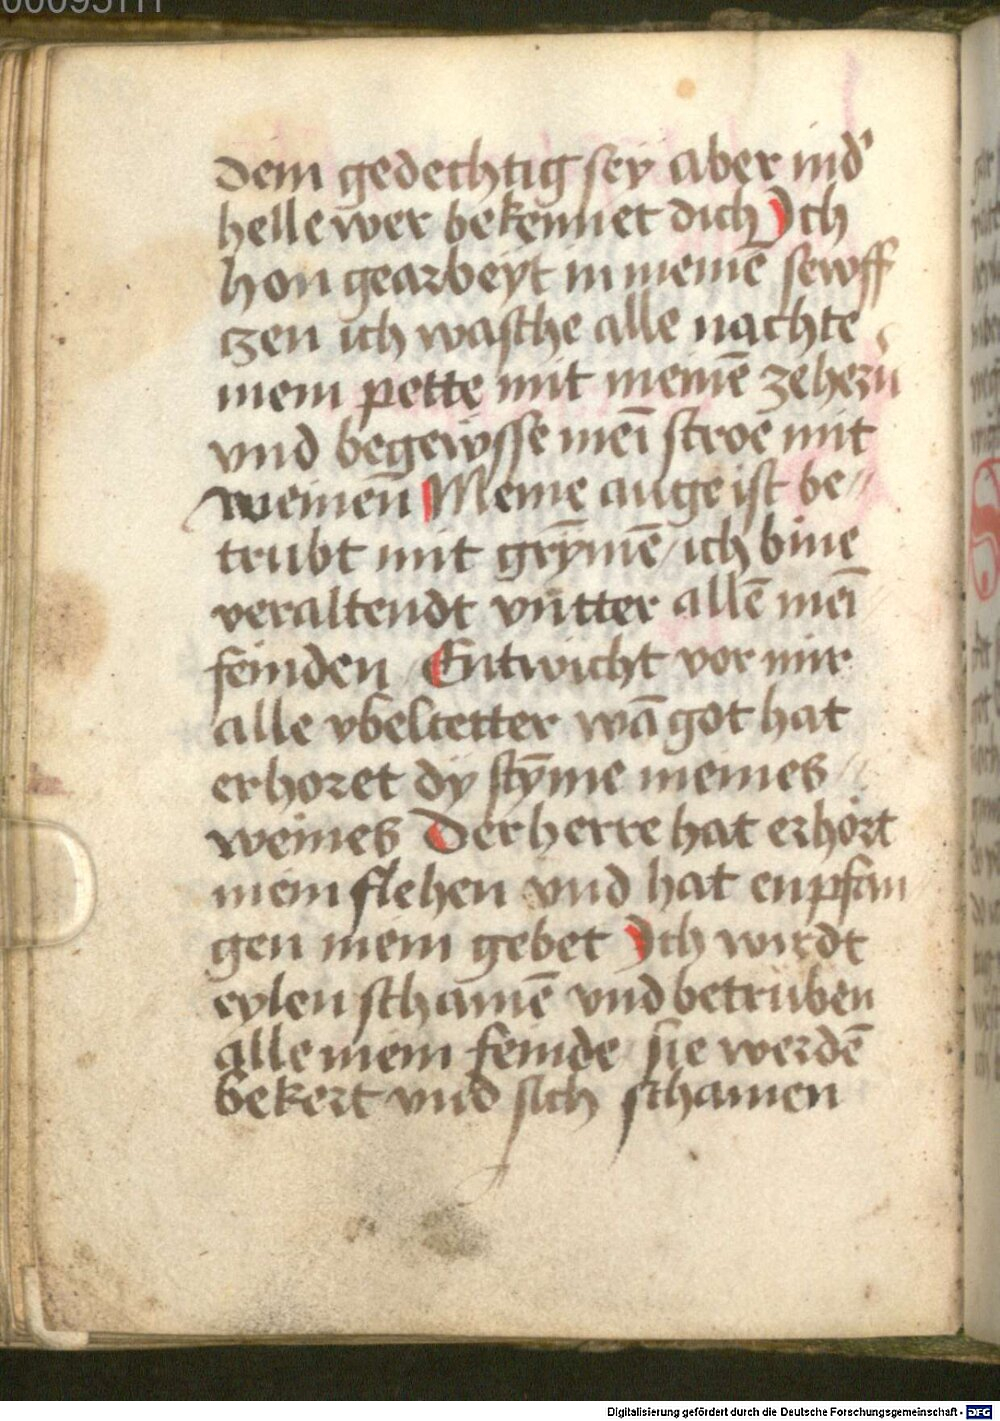 dein gedechtig sey aber in d'
helle wer bekennet dich Ich
hon gearbeyt in meinē sewff
czen ich wasche alle nachte
mein pette mit meinē zeherñ
vnd begewsse meī stroe mit
weinen Meine auge ist be⸗
trubt mit grȳmē / ich bine
veraltendt vntter allē meī
feinden Entwicht vor mir
alle vbeltetter wā got hat
erhoret dy stȳme meines
weines Der herre hat erhört
mein flehen vnd hat enpfan
gen mein gebet Ich wirdt
eylen schamē vnd betrüben
alle mein feinde sie werdē
bekert vnd sich schamen
Digitalisierung gefördert durch die Deutsche Forschungsgemeinschaft - DFG